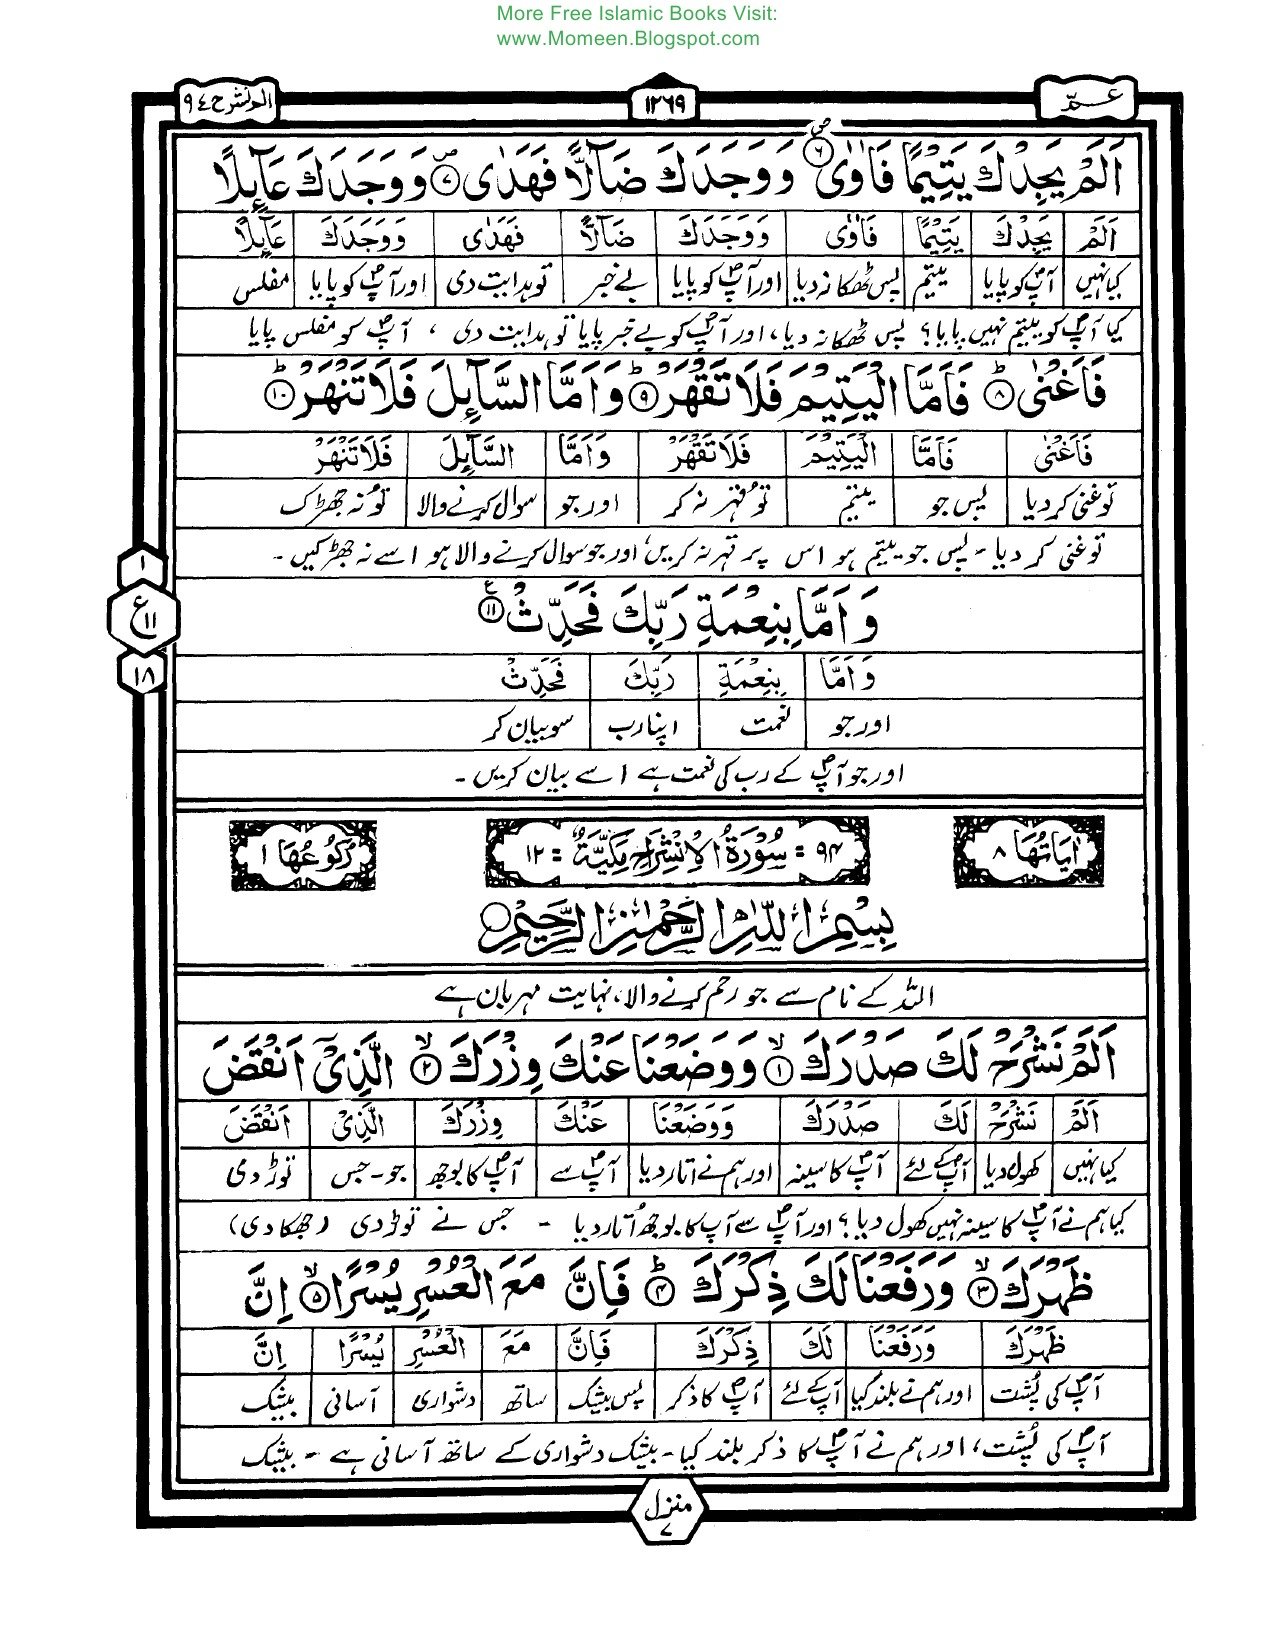 More Free Islamic Books Visit:
www.Momeen.Blogspot.com
عـــمّ ١٢٦٩ الم نشرح ٩٤
اَلَمْ يَجِدْكَ يَتِيْمًا فَاٰوٰى ۶ وَوَجَدَكَ ضَآلًّا فَهَدٰى ۷ وَوَجَدَكَ عَآىِٕلًا
اَلَمْ يَجِدْكَ يَتِيْمًا فَاٰوٰى وَوَجَدَكَ ضَآلًّا فَهَدٰى وَوَجَدَكَ عَآىِٕلًا
کیا نہیں آپؐ کو پایا یتیم پس ٹھکانہ دیا اور آپؐ کو پایا بے خبر تو ہدایت دی اور آپؐ کو پایا مفلس
کیا آپؐ کو یتیم نہیں پایا؟ پس ٹھکانہ دیا، اور آپؐ کو بے خبر پایا تو ہدایت دی ، آپؐ کو مفلس پایا
فَاَغْنٰى ۸ فَاَمَّا الْيَتِيْمَ فَلَا تَقْهَرْ ۹ وَاَمَّا السَّآىِٕلَ فَلَا تَنْهَرْ ۱۰
فَاَغْنٰى فَاَمَّا الْيَتِيْمَ فَلَا تَقْهَرْ وَاَمَّا السَّآىِٕلَ فَلَا تَنْهَرْ
تو غنی کر دیا پس جو یتیم تو قہر نہ کر اور جو سوال کرنے والا تو نہ جھڑک
تو غنی کر دیا ۔ پس جو یتیم ہو اس پر قہر نہ کریں، اور جو سوال کرنے والا ہو اسے نہ جھڑکیں ۔
وَاَمَّا بِنِعْمَةِ رَبِّكَ فَحَدِّثْ ۱۱
۱
ع ۱۱
۱۸
وَاَمَّا بِنِعْمَةِ رَبِّكَ فَحَدِّثْ
اور جو نعمت اپنا رب سو بیان کر
اور جو آپؐ کے رب کی نعمت ہے اسے بیان کریں ۔
اٰيَاتُهَا ۸ ۹۴ = سُوْرَةُ الْاِنْشِرَاحِ مَكِّيَّةٌ = ۱۲ رُكُوْعُهَا ۱
بِسْمِ اللّٰهِ الرَّحْمٰنِ الرَّحِيْمِ
اللہ کے نام سے جو رحم کرنے والا، نہایت مہربان ہے
اَلَمْ نَشْرَحْ لَكَ صَدْرَكَ ۱ وَوَضَعْنَا عَنْكَ وِزْرَكَ ۲ الَّذِيْٓ اَنْقَضَ
اَلَمْ نَشْرَحْ لَكَ صَدْرَكَ وَوَضَعْنَا عَنْكَ وِزْرَكَ الَّذِيْٓ اَنْقَضَ
کیا نہیں کھول دیا آپؐ کے لئے آپؐ کا سینہ اور ہم نے اتار دیا آپؐ سے آپؐ کا بوجھ جو ۔ جس توڑ دی
کیا ہم نے آپؐ کا سینہ نہیں کھول دیا؟ اور آپؐ سے آپؐ کا بوجھ اُتار دیا ۔ جس نے توڑ دی (جھکا دی)
ظَهْرَكَ ۳ وَرَفَعْنَا لَكَ ذِكْرَكَ ۴ فَاِنَّ مَعَ الْعُسْرِ يُسْرًا ۵ اِنَّ
ظَهْرَكَ وَرَفَعْنَا لَكَ ذِكْرَكَ فَاِنَّ مَعَ الْعُسْرِ يُسْرًا اِنَّ
آپؐ کی پُشت اور ہم نے بلند کیا آپؐ کے لئے آپؐ کا ذکر پس بیشک ساتھ دشواری آسانی بیشک
آپؐ کی پُشت، اور ہم نے آپؐ کا ذکر بلند کیا ۔ بیشک دشواری کے ساتھ آسانی ہے ۔ بیشک
منزل ۷